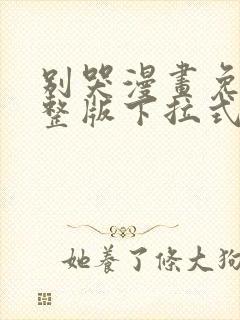 別哭漫畫免
整版下拉式
她養了條大狗